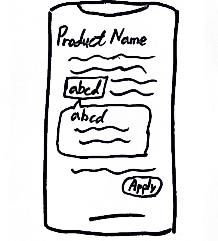 Product Name
abcd
abcd
Apply